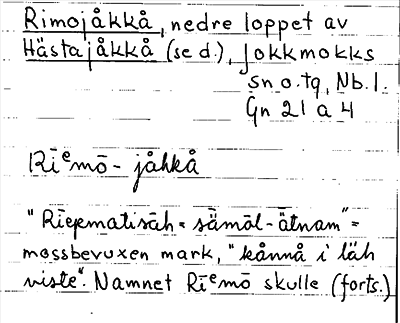 Rimojåkkå, nedre loppet av
Hästajåkkå (se d.), Jokkmokks
sn o. tg, Nb. l.
Gn 21 a 4
Riᵉmō- jåhkå
"Riepmatisäh = sämòl-ätnam" =
mossbevuxen mark, "kånnå i läh
viste". Namnet Riᵉmō skulle (forts.)